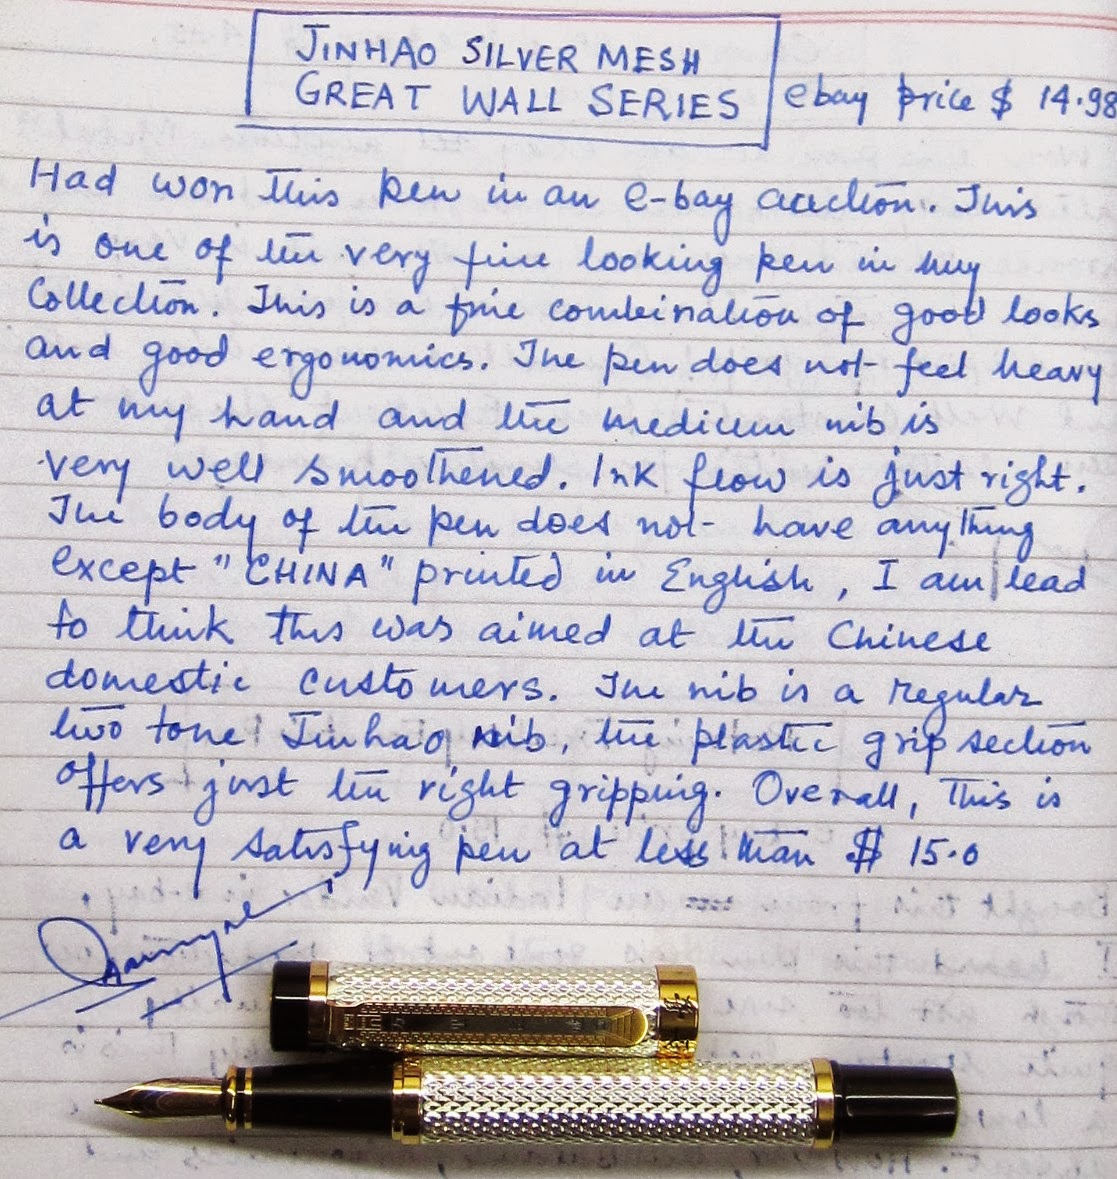 JINHAO SILVER MESH
GREAT WALL SERIES
ebay price $ 14.98
Had won this pen in an e-bay auction. This
is one of the very fine looking pen in my
Collection. This is a fine combination of good looks
and good ergonomics. The pen does not feel heavy
at my hand and the medium nib is
very well smoothened. Ink flow is just right.
The body of the pen does not have anything
except "CHINA" printed in English, I am lead
to think this was aimed at the Chinese
domestic customers. The nib is a regular
two tone Jinhao nib, the plastic grip section
offers just the right gripping. Overall, this is
a very satisfying pen at less than $ 15.0